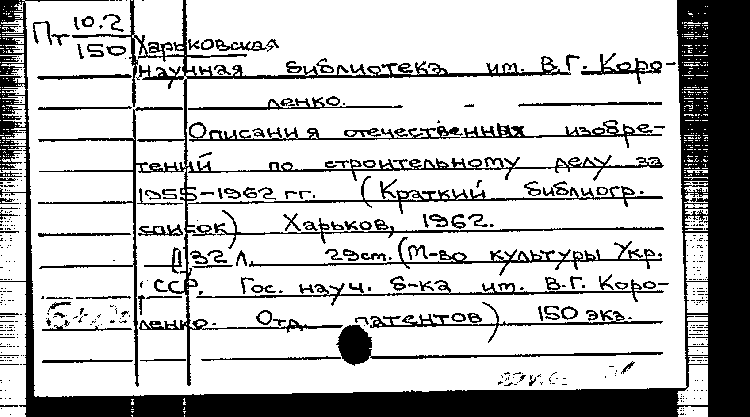 Пт 10.2
150 Харьковская
научная библиотека им. В.Г. Коро-
ленко.
Описания отечественных изобре-
тений по строительному делу за
1955-1962 гг. (Краткий библиогр.
список) Харьков, 1962.
32 л. 29см. (М-во культуры Укр.
ССР. Гос. науч. б-ка им. В.Г. Коро-
ленко. Отд. патентов) 150 экз.